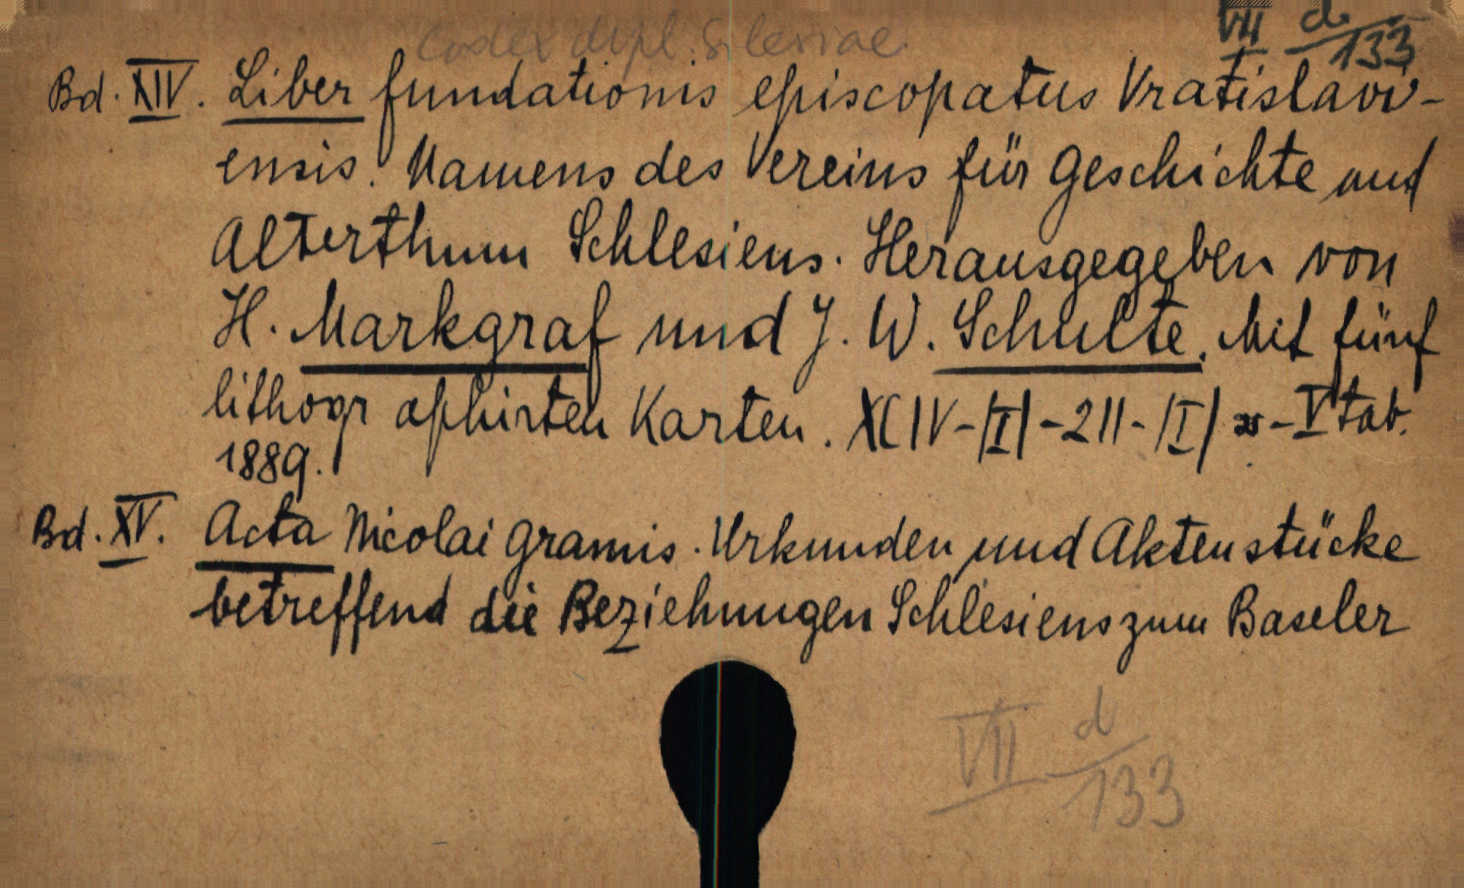 Codex dipl. Silesiae VII d/133
Bd. XIV. Liber fundationis episcopatus Vratislavi-
ensis. Namens des Vereins für Geschichte und
Alterthum Schlesiens. Herausgegeben von
H. Markgraf und J. W. Schulte. Mit fünf
lithographirten Karten. XCIV-|I|-211-|I| - V tab.
1889.
Bd. XV. Acta Nicolai Gramis. Urkunden und Aktenstücke
betreffend die Beziehungen Schlesiens zum Baseler
VII d/133